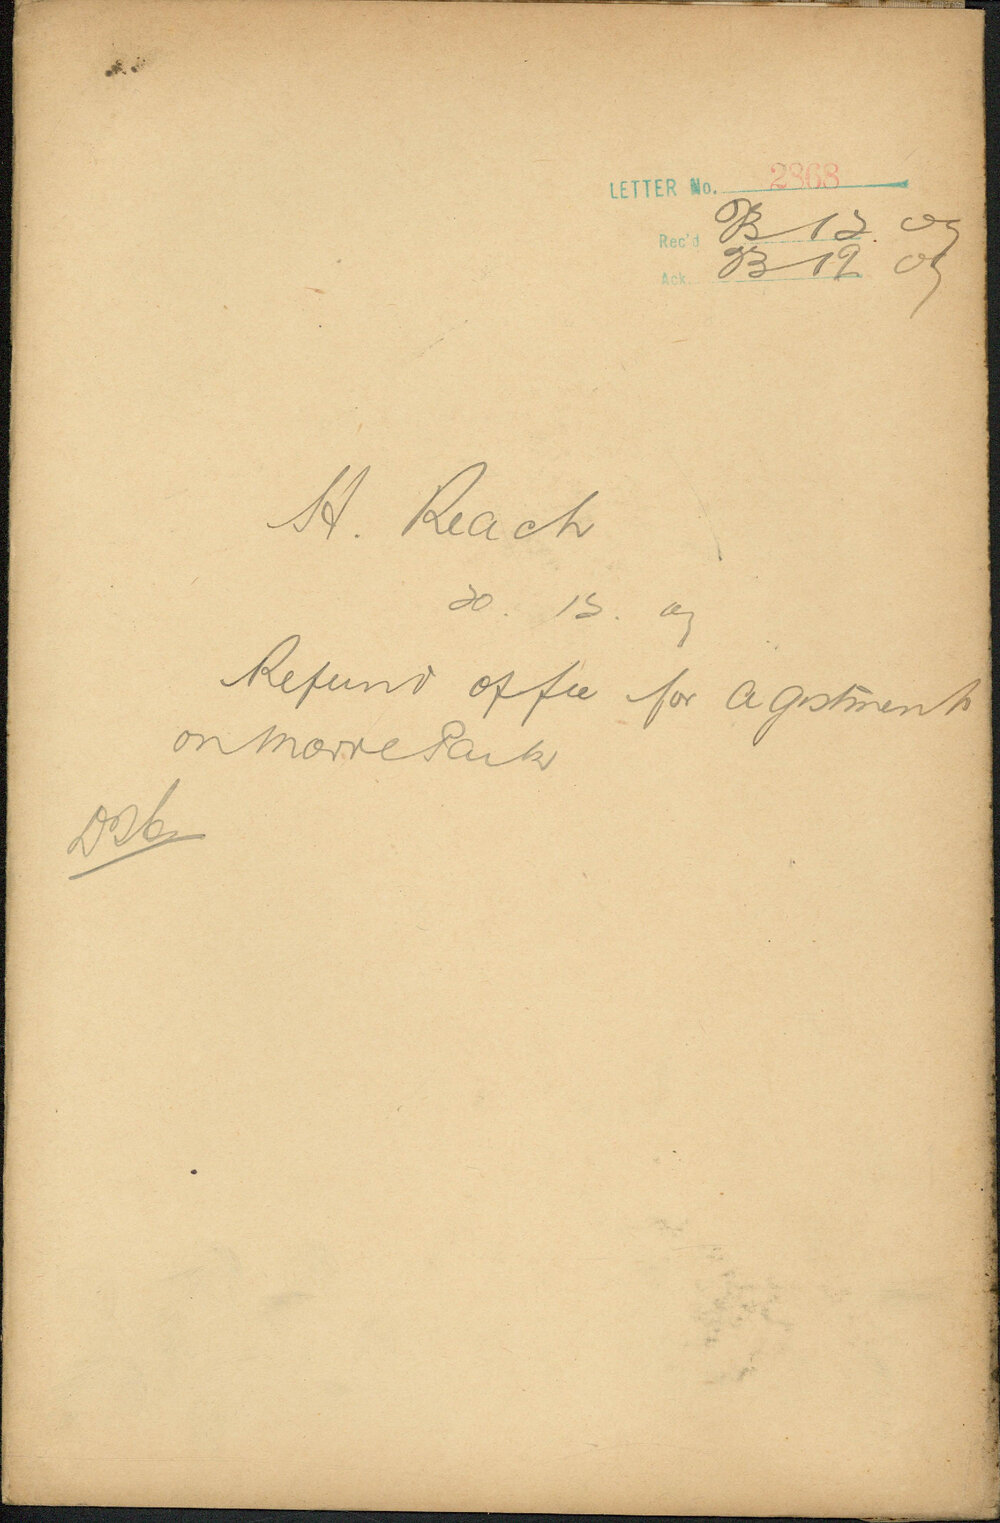 LETTER No. 2368
Rec'd 13 09
Ack. 19 09
H. Reach
20. 13. 09
Refund of fee for agistment
on Moore Park